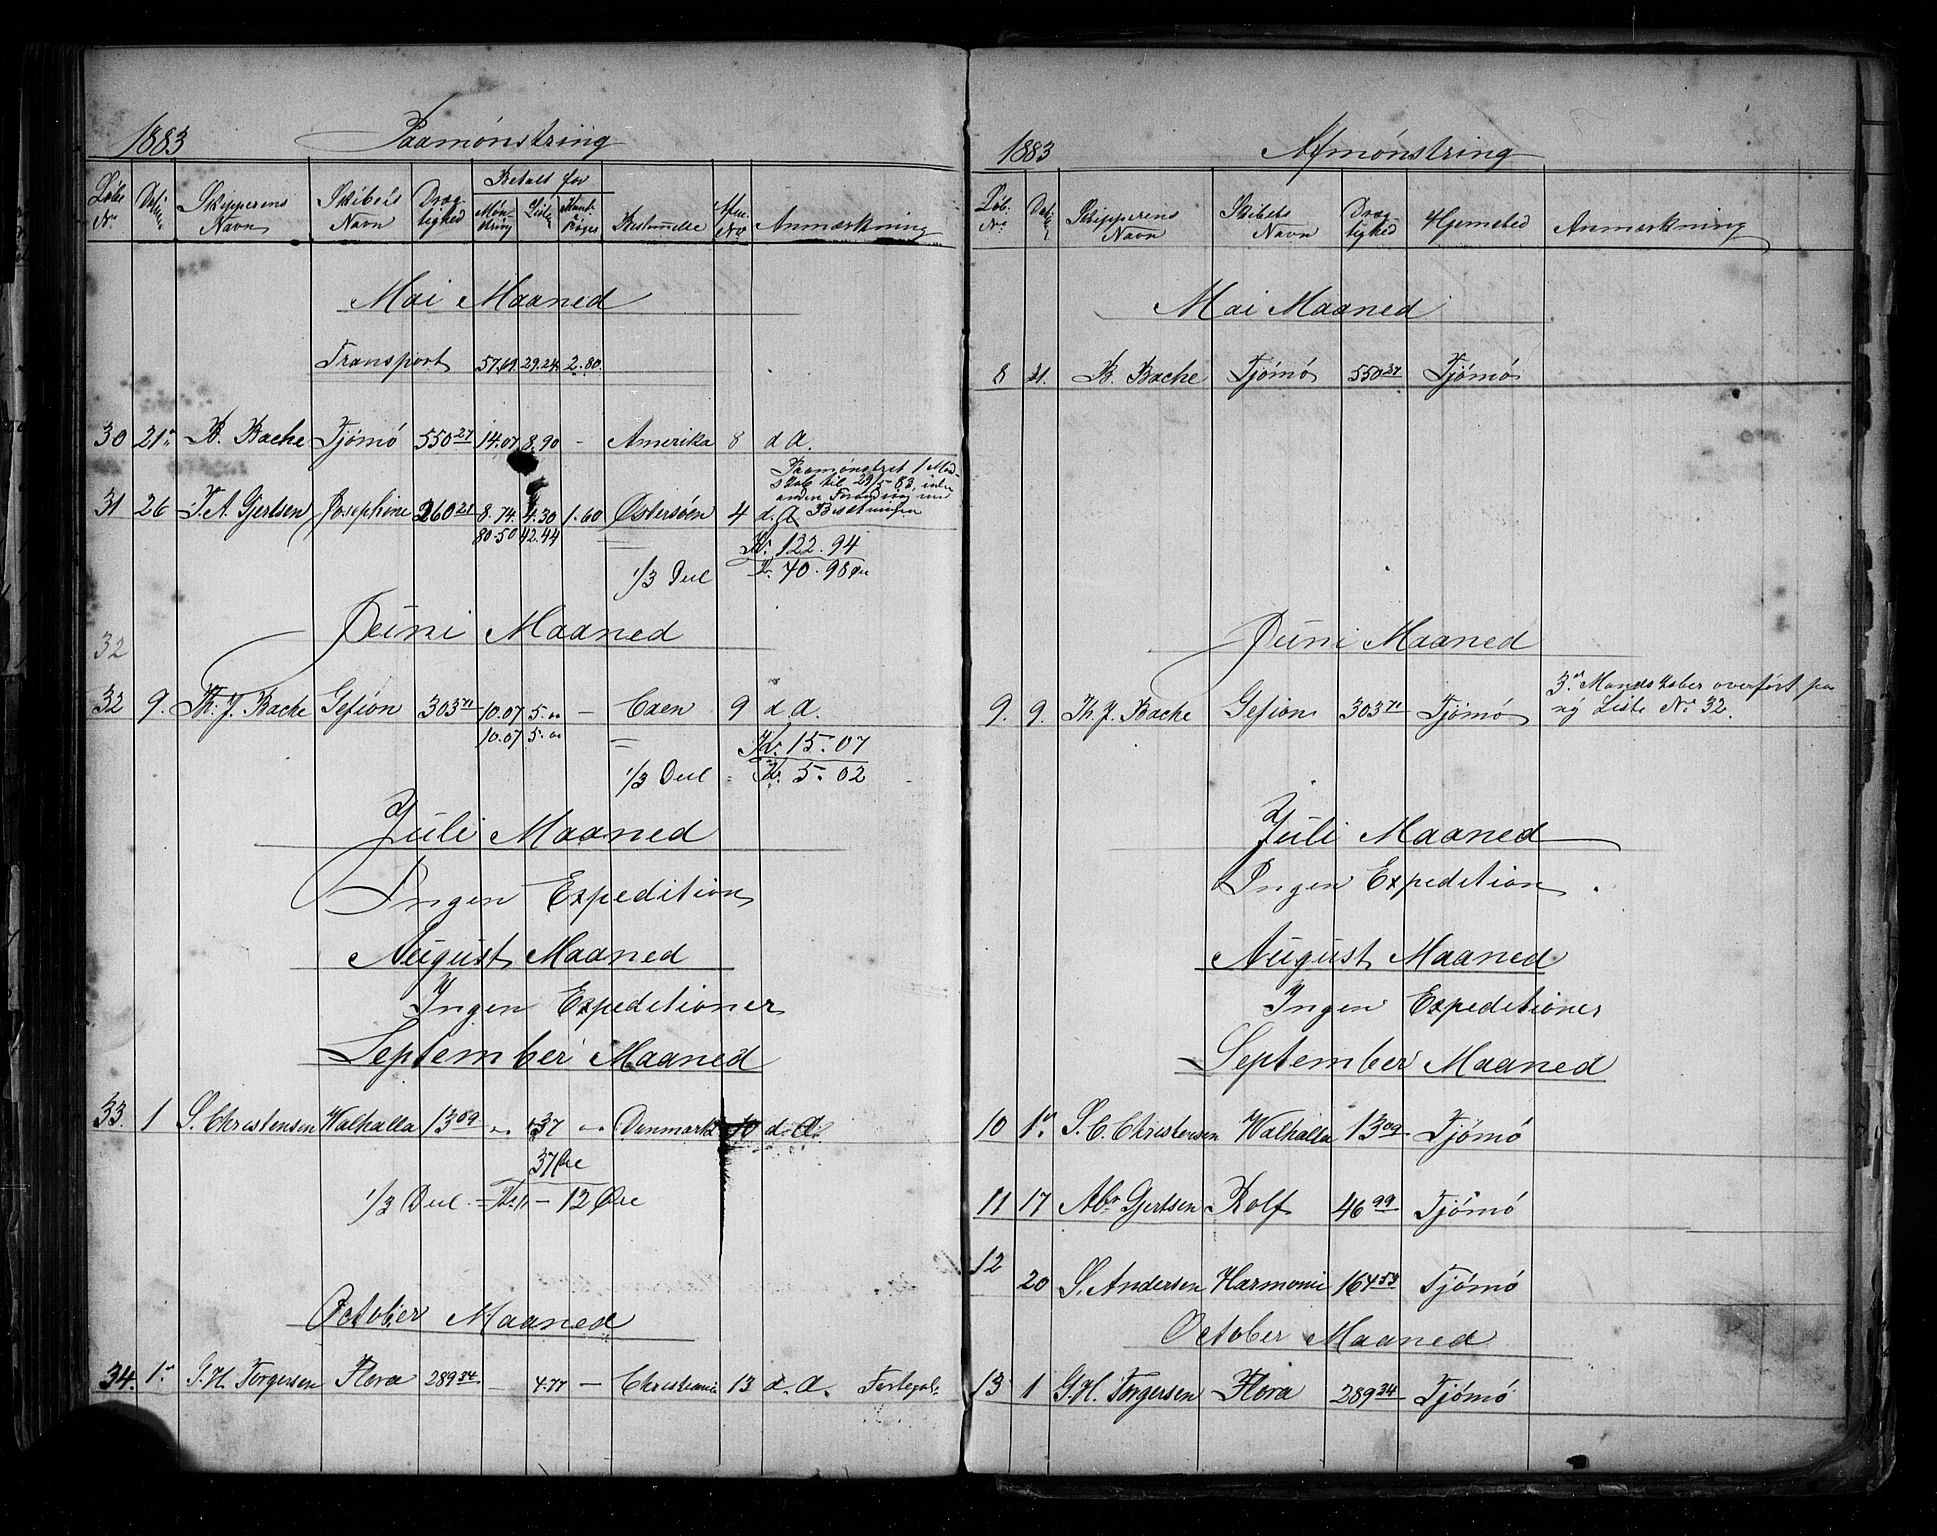 1883 Paamønstring
Løbe No. Datum Skipperens Navn Skibets Navn Dræg-tighed Betalt for Møn-string Liste Bestemmelse Anmærkning
Mai Maaned
Transport 57.69 29.24 2.80
30 21de B. Bache Tjømø 550 27 14.07 8.90 - Amerika 8 d A.
Paamønstret 1 Mand-
skab til 29/5-83, inden
anden Forandring med
Besætningen
31 26 J. A. Gjertsen Josephine 260 21 8.74 4.30 1.60 Østersøen 4 d. A.
80.50 42.44 Kr. 122.94
1/3 Deel Kr. 40.98 Øre
Juni Maaned
32
32 9. Th. J. Bache Gefion 303 71 10.07 5.00 - Caen 9 d A.
10.07 5.00 = Kr. 15.07
1/3 Deel Kr. 5.02
Juli Maaned
Ingen Expedition
August Maaned
Ingen Expeditioner
September Maaned
33. 1 S. Christensen Walhalla 13 09 " 37 " Danmark 10 d. A.
37 Øre
1/3 Deel = Kr. " - 12 Øre
October Maaned
34. 1. G. H. Torgersen Flora 289 34 - 4.77 - Christiania 13 d. A.
1883 Afmønstring
Løb. No. Dat. Skipperens Navn Skibets Navn Dræg-tighed Hjemsted Anmærkning
Mai Maaned
8 21. B. Bache Tjømø 550 27 Tjømø
Juni Maaned
9. 9. Th. J. Bache Gefion 303 71 Tjømø 3de Mandskaber overført paa
ny Liste No 32.
Juli Maaned
Ingen Expedition.
August Maaned
Ingen Expeditioner
September Maaned
10 1. S. C. Christensen Walhalla 13 09 Tjømø
11 17 Abr. Gjertsen Rolf 46 99 Tjømø
12 20 S. Andersen Harmonie 164 53 Tjømø
October Maaned
13 1 G. H. Torgersen Flora 289 34 Tjømø